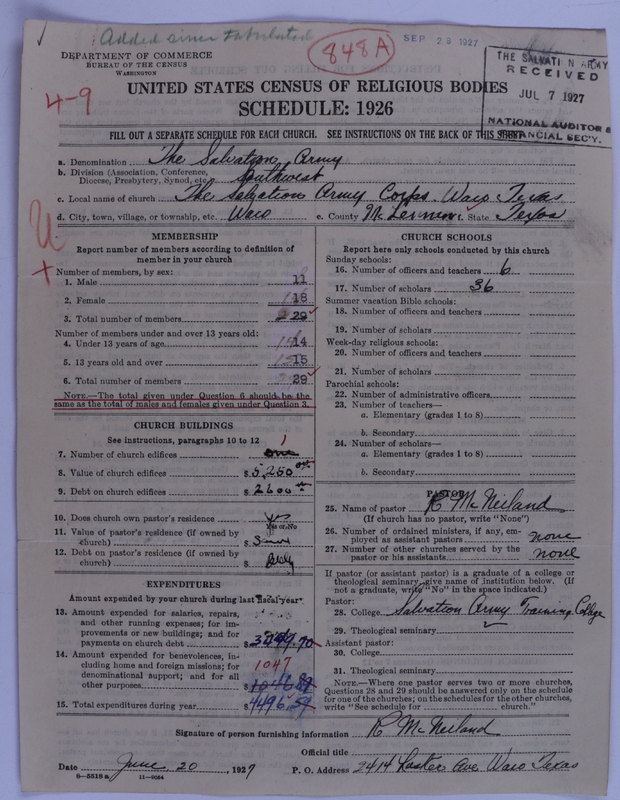 Added since tabulated
848A
SEP 28 1927
THE SALVATION ARMY
RECEIVED
JUL 7 1927
NATIONAL AUDITOR &
FINANCIAL SEC'Y.
DEPARTMENT OF COMMERCE
BUREAU OF THE CENSUS
WASHINGTON
4-9
UNITED STATES CENSUS OF RELIGIOUS BODIES
SCHEDULE: 1926
FILL OUT A SEPARATE SCHEDULE FOR EACH CHURCH. SEE INSTRUCTIONS ON THE BACK OF THIS SHEET
a. Denomination The Salvation Army
b. Division (Association, Conference, Diocese, Presbytery, Synod, etc. Southwest
c. Local name of church The Salvation Army Corps. Waco Texas
d. City, town, village, or township, etc. Waco e. County State Texas
MEMBERSHIP
Report number of members according to definition of
member in your church
Number of members, by sex:
1. Male 11
2. Female 18
3. Total number of members 29
Number of members under and over 13 years old:
4. Under 13 years of age 14
5. 13 years old and over 15
6. Total number of members 29
NOTE.—The total given under Question 6 should be the
same as the total of males and females given under Question 3.
CHURCH BUILDINGS
See instructions, paragraphs 10 to 12
7. Number of church edifices one 1
8. Value of church edifices $ 5,250 00
9. Debt on church edifices $ 2600 00
10. Does church own pastor's residence yes
Yes or No
11. Value of pastor's residence (if owned by
church) $
12. Debt on pastor's residence (if owned by
church) $
EXPENDITURES
Amount expended by your church during last fiscal year
13. Amount expended for salaries, repairs,
and other running expenses; for im-
provements or new buildings; and for
payments on church debt $ 3449.70
14. Amount expended for benevolences, in-
cluding home and foreign missions; for
denominational support; and for all
other purposes $
1047
15. Total expenditures during year $ 4496.59
CHURCH SCHOOLS
Report here only schools conducted by this church
Sunday schools:
16. Number of officers and teachers 6
17. Number of scholars 36
Summer vacation Bible schools:
18. Number of officers and teachers
19. Number of scholars
Week-day religious schools:
20. Number of officers and teachers
21. Number of scholars
Parochial schools:
22. Number of administrative officers
23. Number of teachers—
a. Elementary (grades 1 to 8)
b. Secondary
24. Number of scholars—
a. Elementary (grades 1 to 8)
b. Secondary
PASTOR
25. Name of pastor R McNeiland
(If church has no pastor, write "None")
26. Number of ordained ministers, if any, em-
ployed as assistant pastors none
27. Number of other churches served by the
pastor or his assistants none
If pastor (or assistant pastor) is a graduate of a college or
theological seminary, give name of institution below. (If
not a graduate, write "No" in the space indicated.)
Pastor:
28. College Salvation Army Training College
29. Theological seminary
Assistant pastor:
30. College
31. Theological seminary
NOTE.—Where one pastor serves two or more churches,
Questions 28 and 29 should be answered only on the schedule
for one of the churches; on the schedules for the other churches,
write "See schedule for church."
Signature of person furnishing information R McNeiland
Official title
Date June 20, 1927 P. O. Address 2414 Ave Waco Texas
8—5518a 11—9054